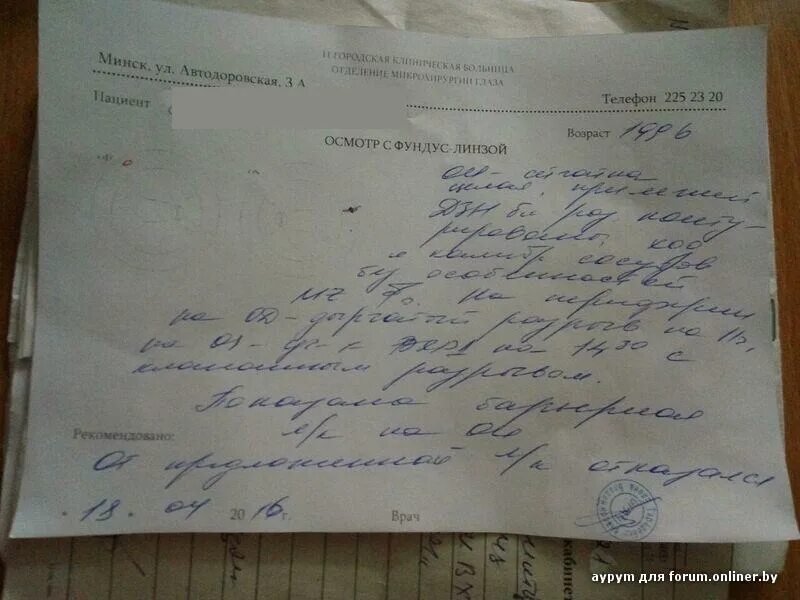 11 ГОРОДСКАЯ КЛИНИЧЕСКАЯ БОЛЬНИЦА
ОТДЕЛЕНИЕ МИКРОХИРУРГИИ ГЛАЗА
Минск, ул. Автодоровская, 3 А
Телефон 225 23 20
Пациент
Возраст 1996
ОСМОТР С ФУНДУС-ЛИНЗОЙ
OU - сетчатка
целая, прилежит
ДЗН бл роз конту-
рированы, ход
и калибр сосудов
без особенностей
На периферии
на OD - дырчатый разрыв на
на OS - на с
клапанным разрывом.
Показана барьерная
л/к на OU
Рекомендовано:
От предложенной л/к отказался
18 04 2016 г. Врач
аурум для forum.onliner.by